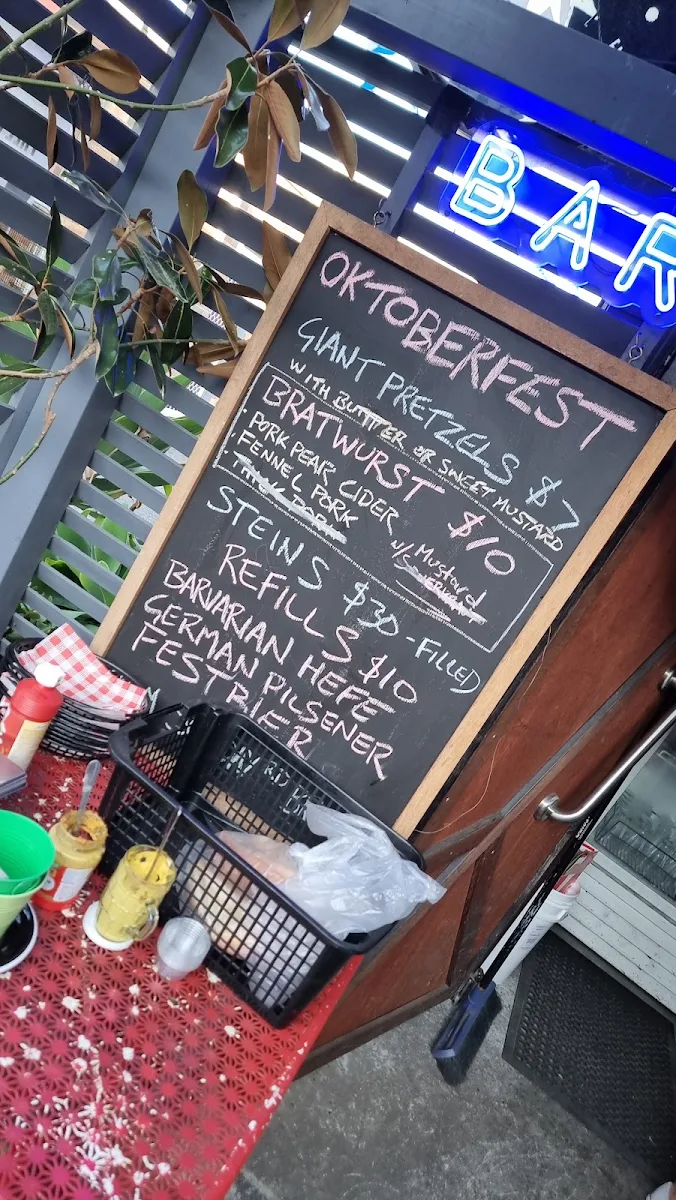 BAR
OKTOBERFEST
GIANT PRETZELS $7
WITH BUTTTER OR SWEET MUSTARD
BRATWURST $10
· PORK PEAR CIDER
· FENNEL PORK
w/ Mustard
STEINS $30 - FILLED
REFILLS $10
BARVARIAN HEFE
GERMAN PILSENER
FESTBIER